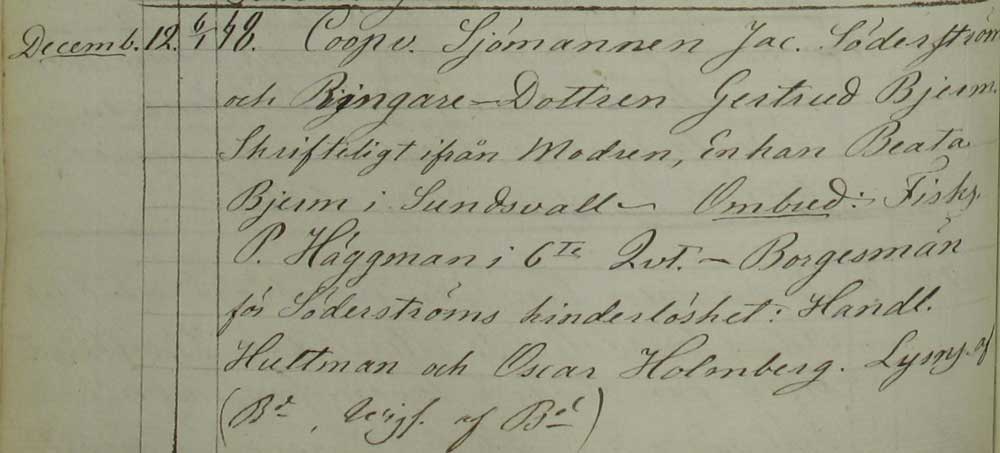 Decemb. 12. 6/1 48. Coopv. Sjömannen Jac. Söderström
och Ringare-Dottren Gertrud Bjurm.
Skrifteligt ifrån Modren, Enkan Beata
Bjurm i Sundsvall – Ombud: Fiskr.
P. Häggman i 6te Qvt. – Borgesmän
för Söderströms hinderlöshet: Handl.
Hultman och Oscar Holmberg. Lysn. af
(Bd, Vigs. af Bd)